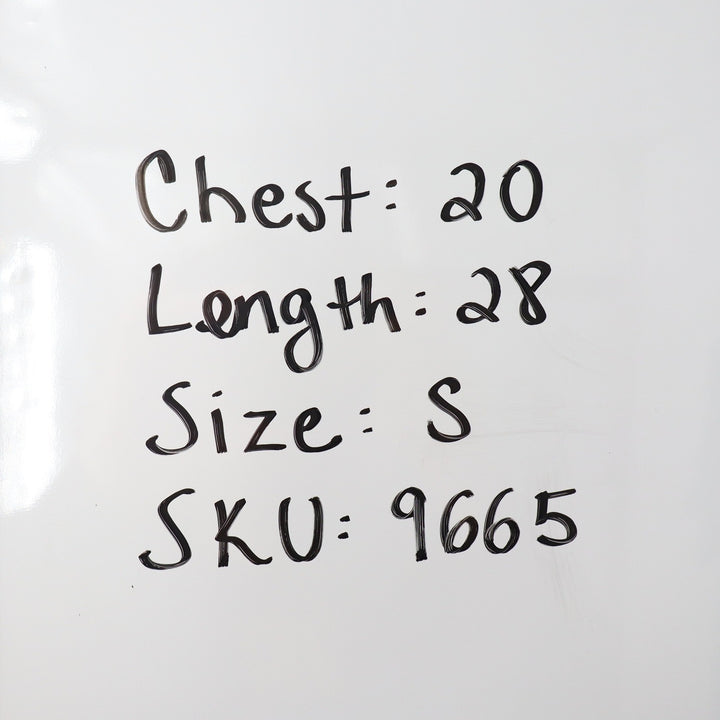 Chest: 20
Length: 28
Size: S
SKU: 9665